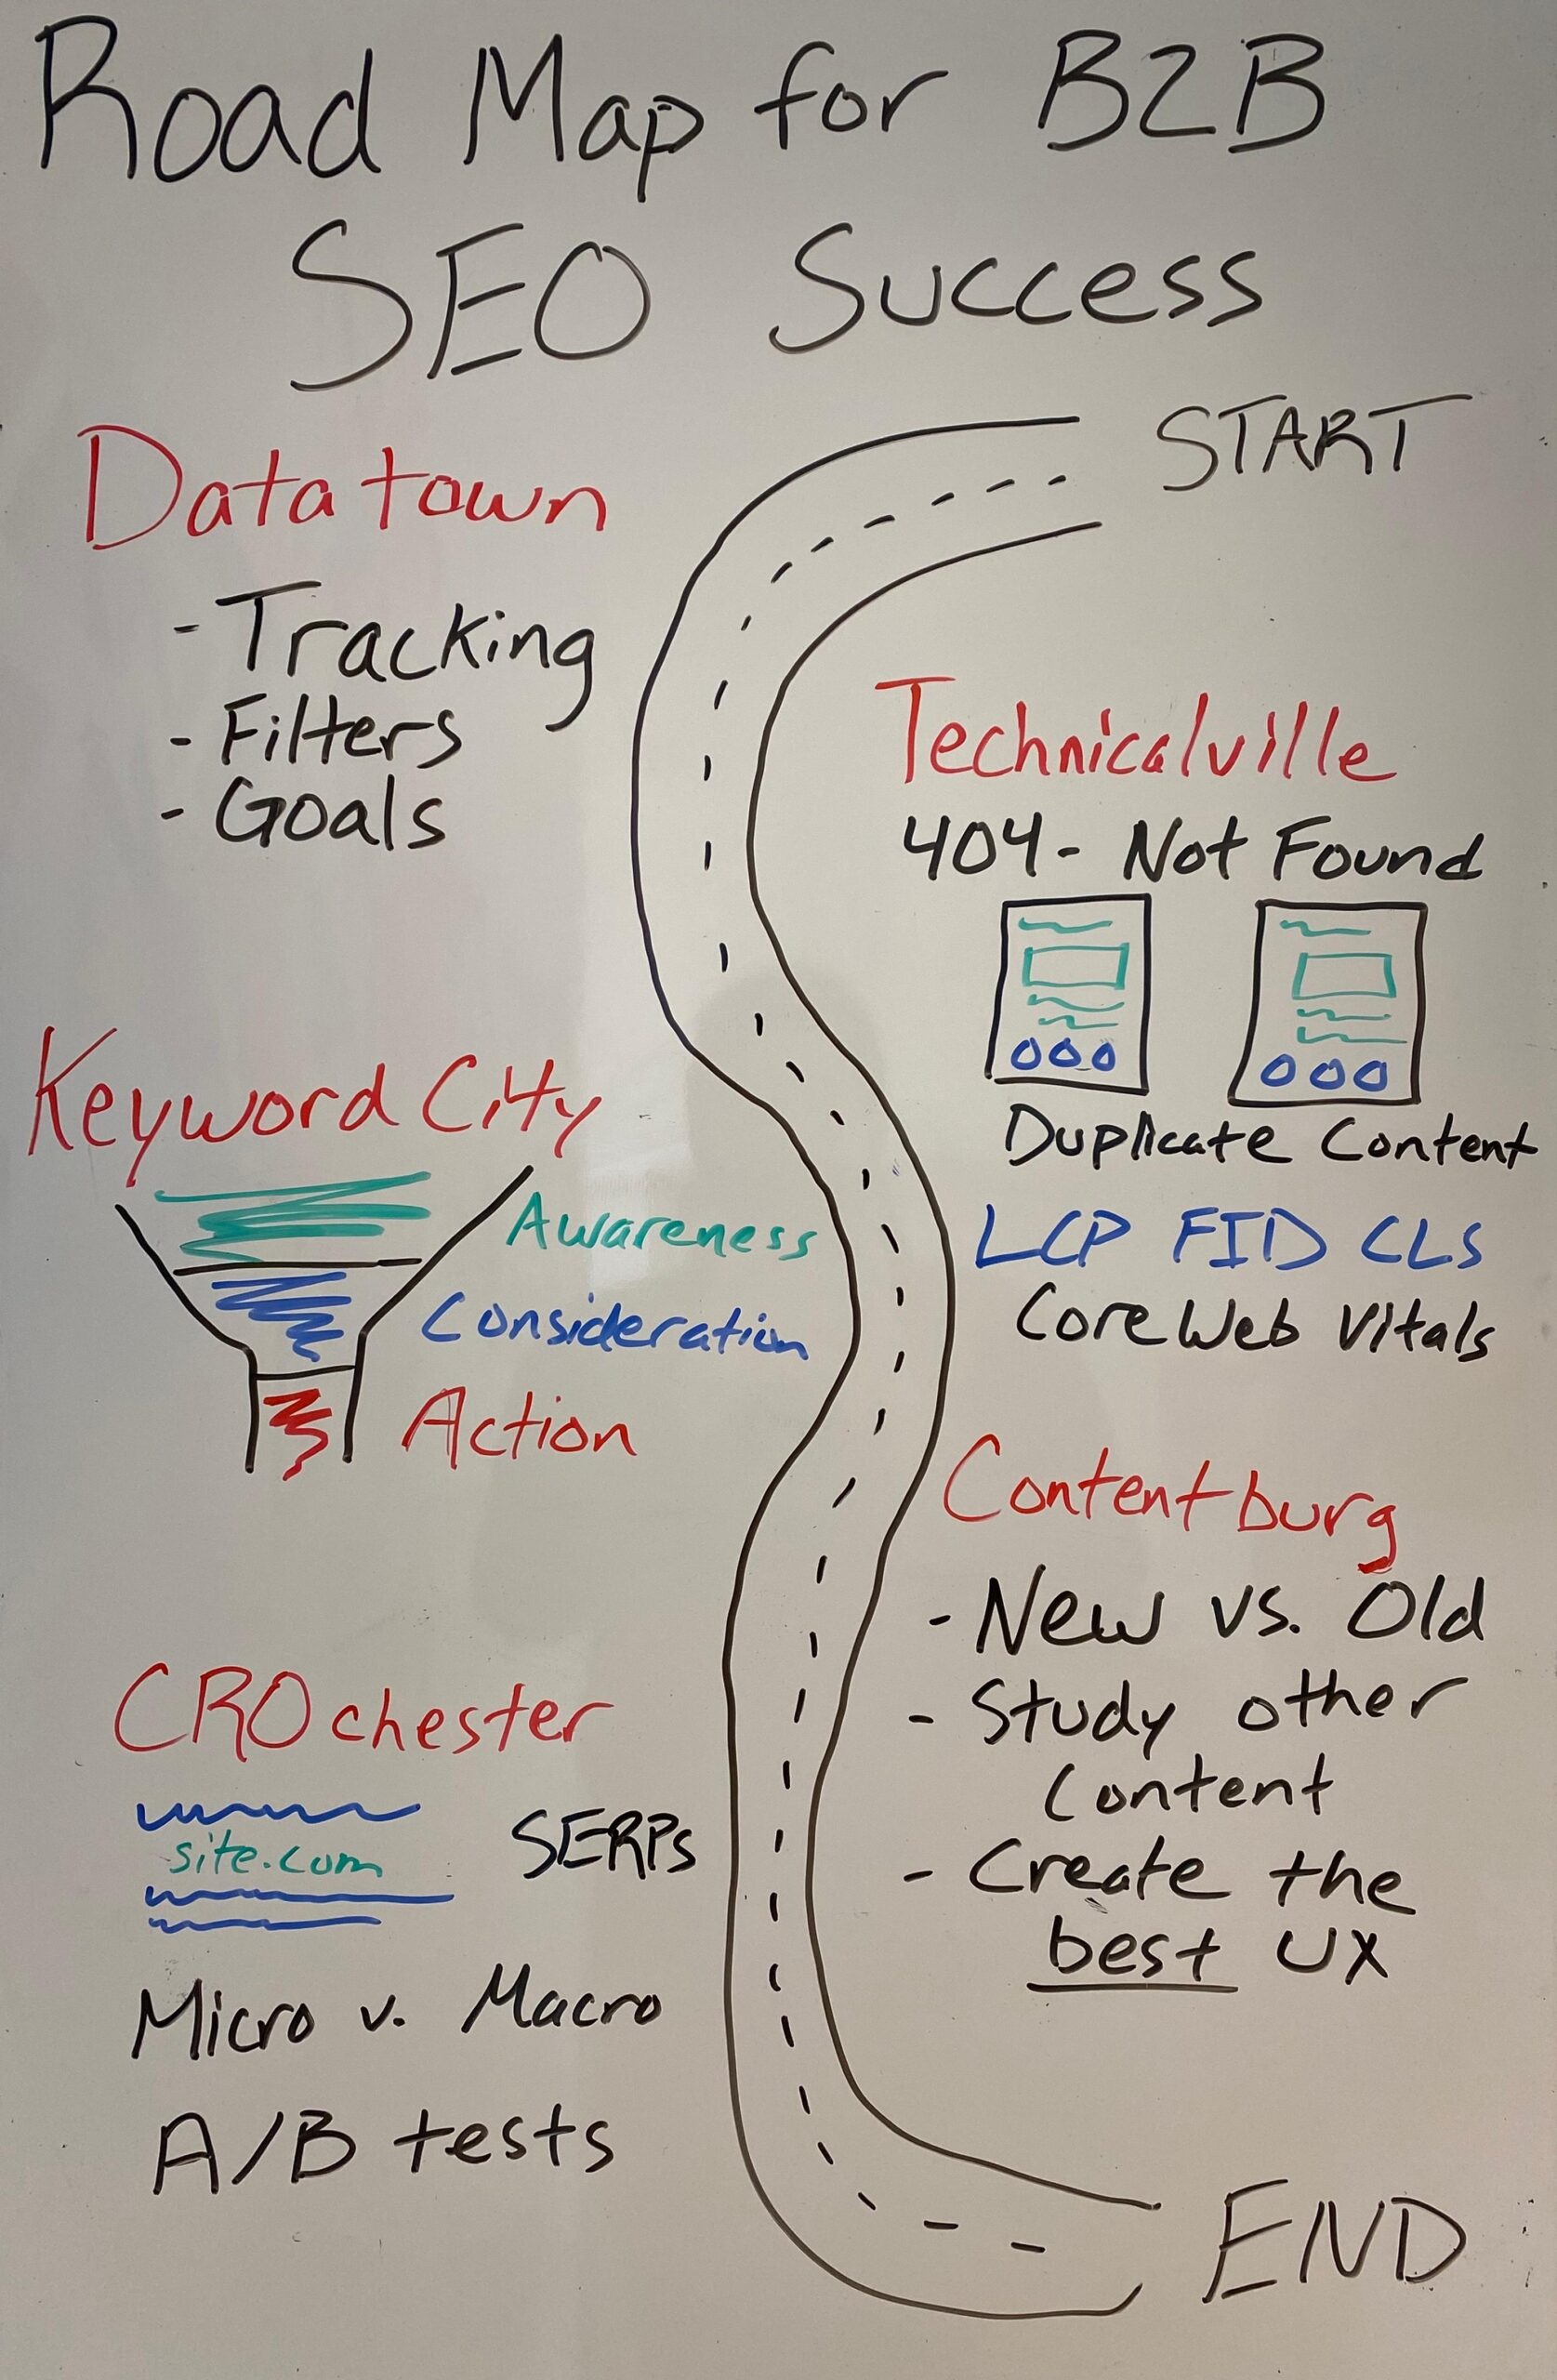 Road Map for B2B
SEO Success
START
Datatown
- Tracking
- Filters
- Goals
Technicalville
404 - Not Found
Duplicate Content
LCP FID CLS
Core Web Vitals
Keyword City
Awareness
Consideration
Action
Contentburg
- New vs. Old
- Study other
Content
- Create the
best UX
CROchester
site.com
SERPs
Micro v. Macro
A/B tests
END